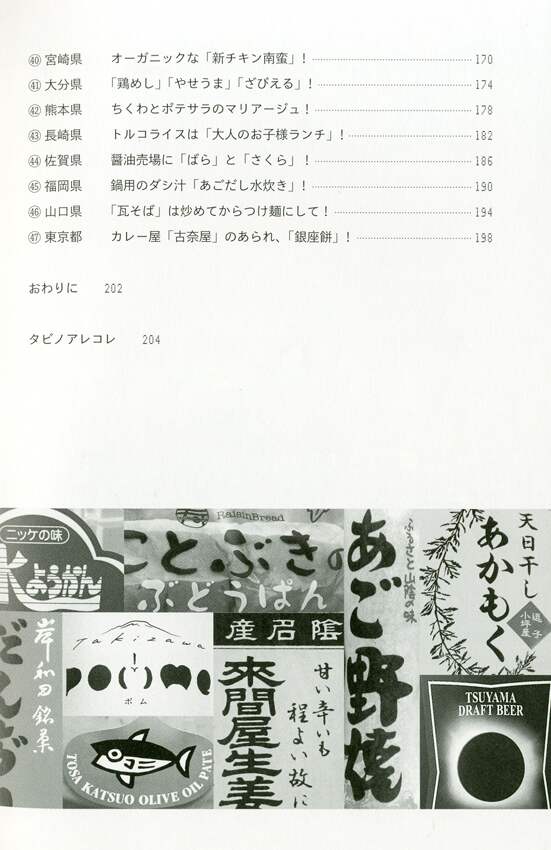 ㊵ 宮崎県 オーガニックな「新チキン南蛮」! 170
㊶ 大分県 「鶏めし」「やせうま」「ざびえる」! 174
㊷ 熊本県 ちくわとポテサラのマリアージュ! 178
㊸ 長崎県 トルコライスは「大人のお子様ランチ」! 182
㊹ 佐賀県 醤油売場に「ばら」と「さくら」! 186
㊺ 福岡県 鍋用のダシ汁「あごだし水炊き」! 190
㊻ 山口県 「瓦そば」は炒めてからつけ麺にして! 194
㊼ 東京都 カレー屋「古奈屋」のあられ、「銀座餅」! 198
おわりに 202
タビノアレコレ 204
ニッケの味
水ようかん
RaisinBread
ことぶきの
ぶどうぱん
あご野焼
ふるさと山陰の味
天日干し
あかもく
逗子
小坪産
岸和田銘菓
Takizawa
ボム
TOSA KATSUO OLIVE OIL PATE
陰名産
來間屋生姜
甘い辛いも
程よい故に
TSUYAMA
DRAFT BEER